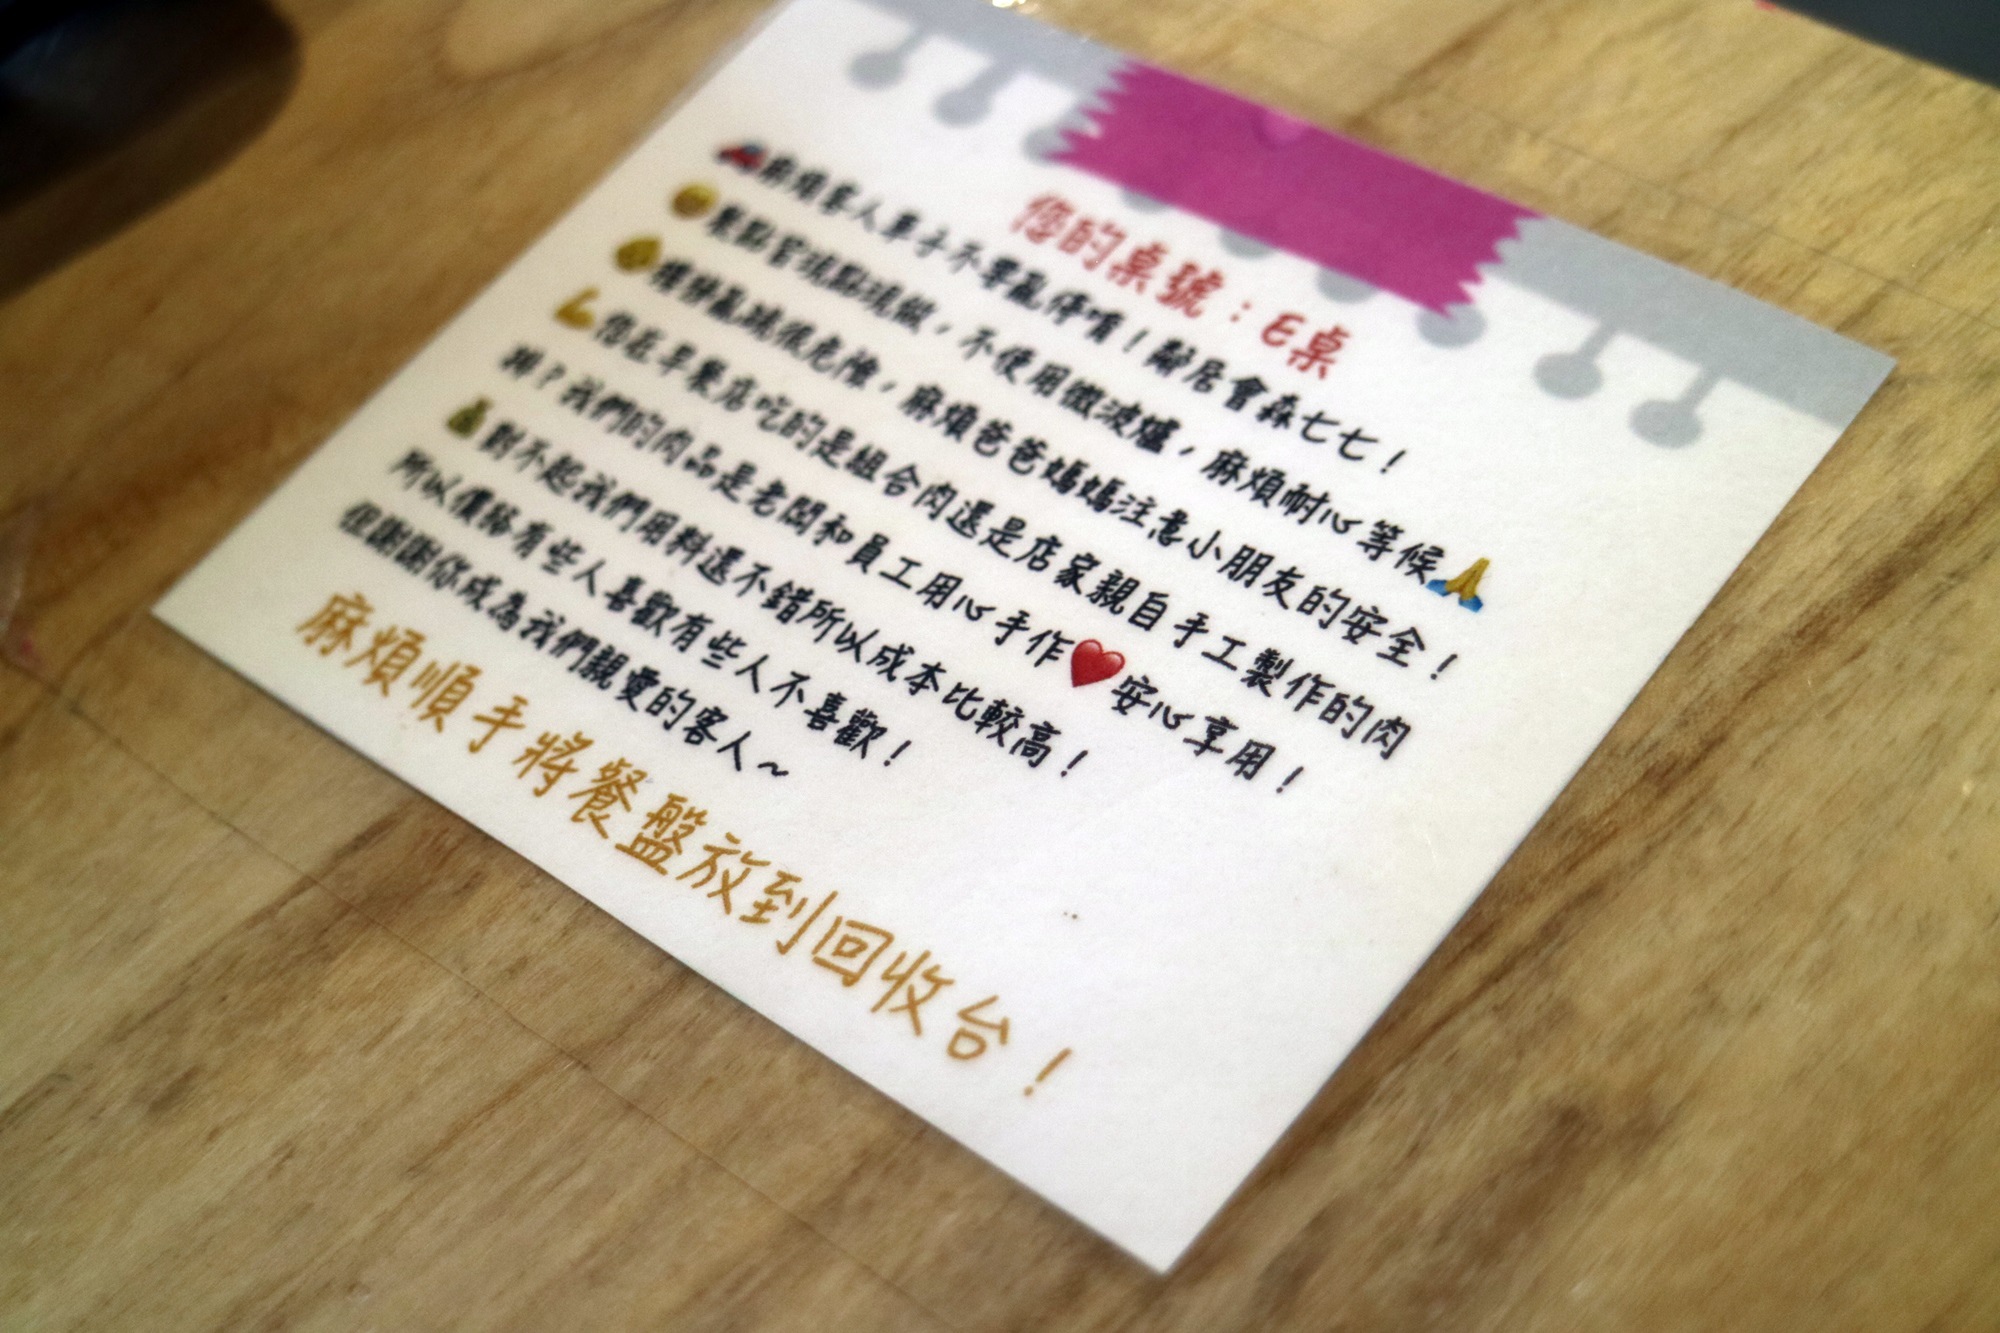 您的桌號：E桌
🚗麻煩客人車子不要亂停唷！鄰居會森七七！
餐點皆現點現做，不使用微波爐，麻煩耐心等候🙏
樓梯亂跑很危險，麻煩爸爸媽媽注意小朋友的安全！
💪您在早餐店吃的是組合肉還是店家親自手工製作的肉
排？我們的肉品是老闆和員工用心手作❤️安心享用！
💰對不起我們用料還不錯所以成本比較高！
所以價格有些人喜歡有些人不喜歡！
但謝謝你成為我們親愛的客人~
麻煩順手將餐盤放到回收台！